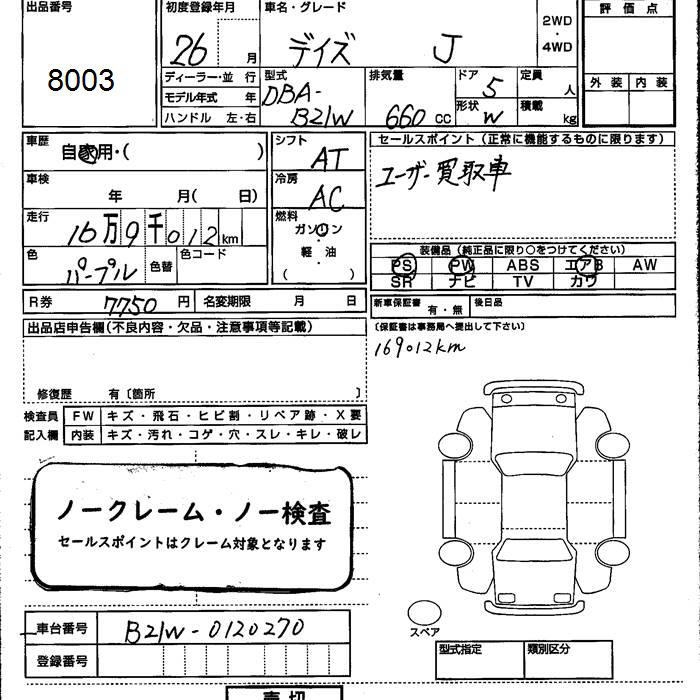 出品番号
8003
初度登録年月
26 月
車名・グレード
デイズ J
2WD
・
4WD
評価点
外装 内装
ディーラー・並行
モデル年式 年
ハンドル 左・右
型式
DBA-
B21W
排気量
660 CC
ドア
5
形状
W
定員
人
積載
kg
車歴
自家用・( )
車検
年 月( 日)
走行
16万9千012km
色
パープル
色替
色コード
シフト
AT
冷房
AC
燃料
ガソリン
軽油
( )
セールスポイント(正常に機能するものに限ります)
ユーザー買取車
装備品(純正品に限り○をつけてください)
PS PW ABS エアB AW
SR ナビ TV カワ
R券 7750 円
名変期限 月 日
新車保証書 有・無
後日品
(保証書は事務局へ提出して下さい)
169012km
出品店申告欄(不良内容・欠品・注意事項等記載)
修復歴 有〔箇所 〕
検査員
記入欄
FW キズ・飛石・ヒビ割・リペア跡・X要
内装 キズ・汚れ・コゲ・穴・スレ・キレ・破レ
ノークレーム・ノー検査
セールスポイントはクレーム対象となります
車台番号 B21W-0120270
登録番号
スペア
型式指定 類別区分
売切